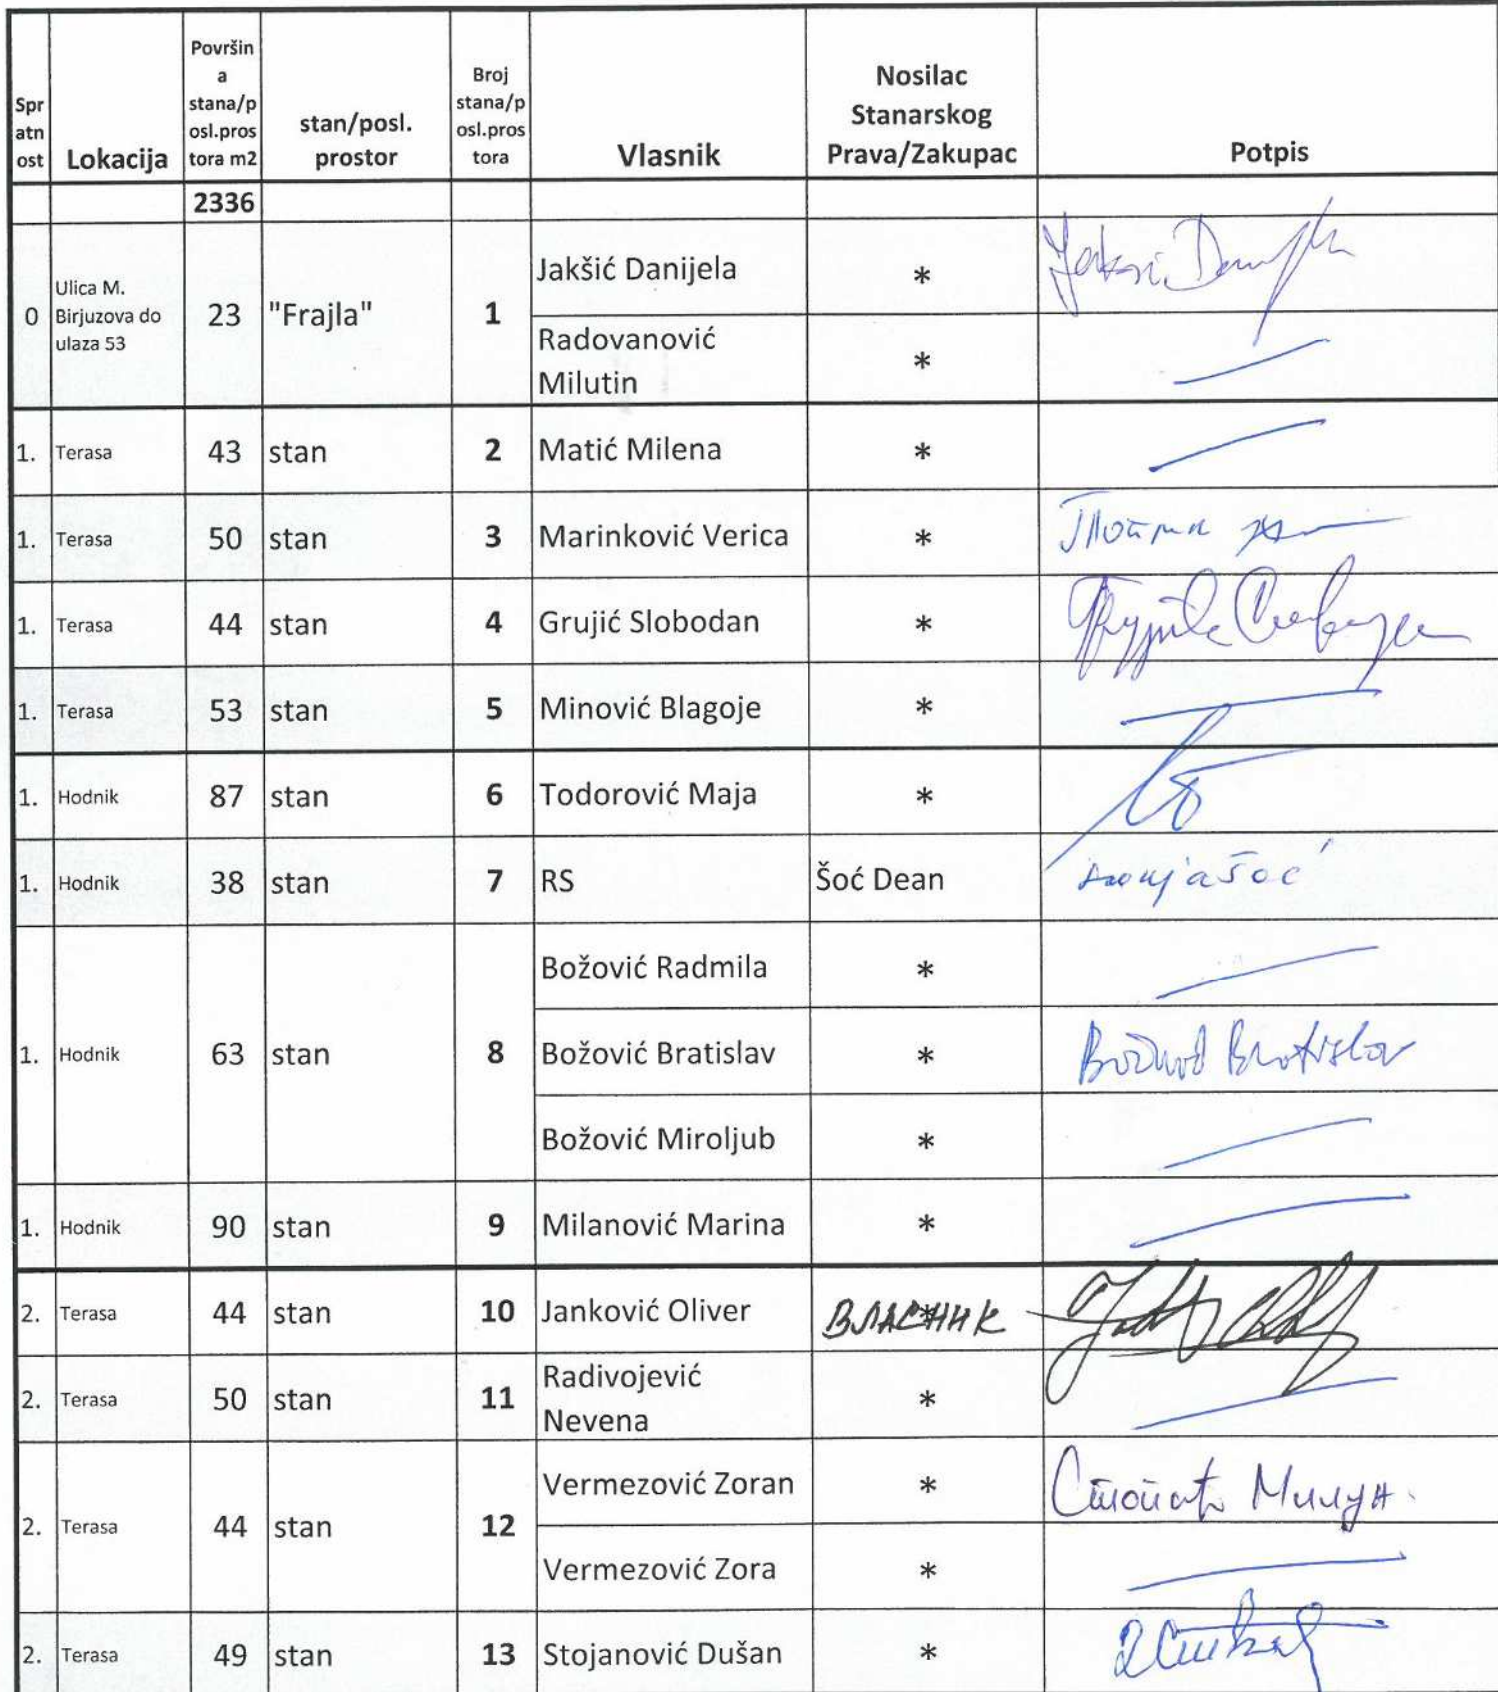 Spr atn ost Lokacija Površin a stana/p osl.pros tora m2 stan/posl. prostor Broj stana/p osl.pros tora Vlasnik Nosilac Stanarskog Prava/Zakupac Potpis
2336
0 Ulica M. Birjuzova do ulaza 53 23 "Frajla" 1 Jakšić Danijela *
Radovanović Milutin *
1. Terasa 43 stan 2 Matić Milena *
1. Terasa 50 stan 3 Marinković Verica *
1. Terasa 44 stan 4 Grujić Slobodan *
1. Terasa 53 stan 5 Minović Blagoje *
1. Hodnik 87 stan 6 Todorović Maja *
1. Hodnik 38 stan 7 RS Šoć Dean
1. Hodnik 63 stan 8 Božović Radmila *
Božović Bratislav *
Božović Miroljub *
1. Hodnik 90 stan 9 Milanović Marina *
2. Terasa 44 stan 10 Janković Oliver * ВЛАСНИК
2. Terasa 50 stan 11 Radivojević Nevena *
2. Terasa 44 stan 12 Vermezović Zoran *
Vermezović Zora *
2. Terasa 49 stan 13 Stojanović Dušan *